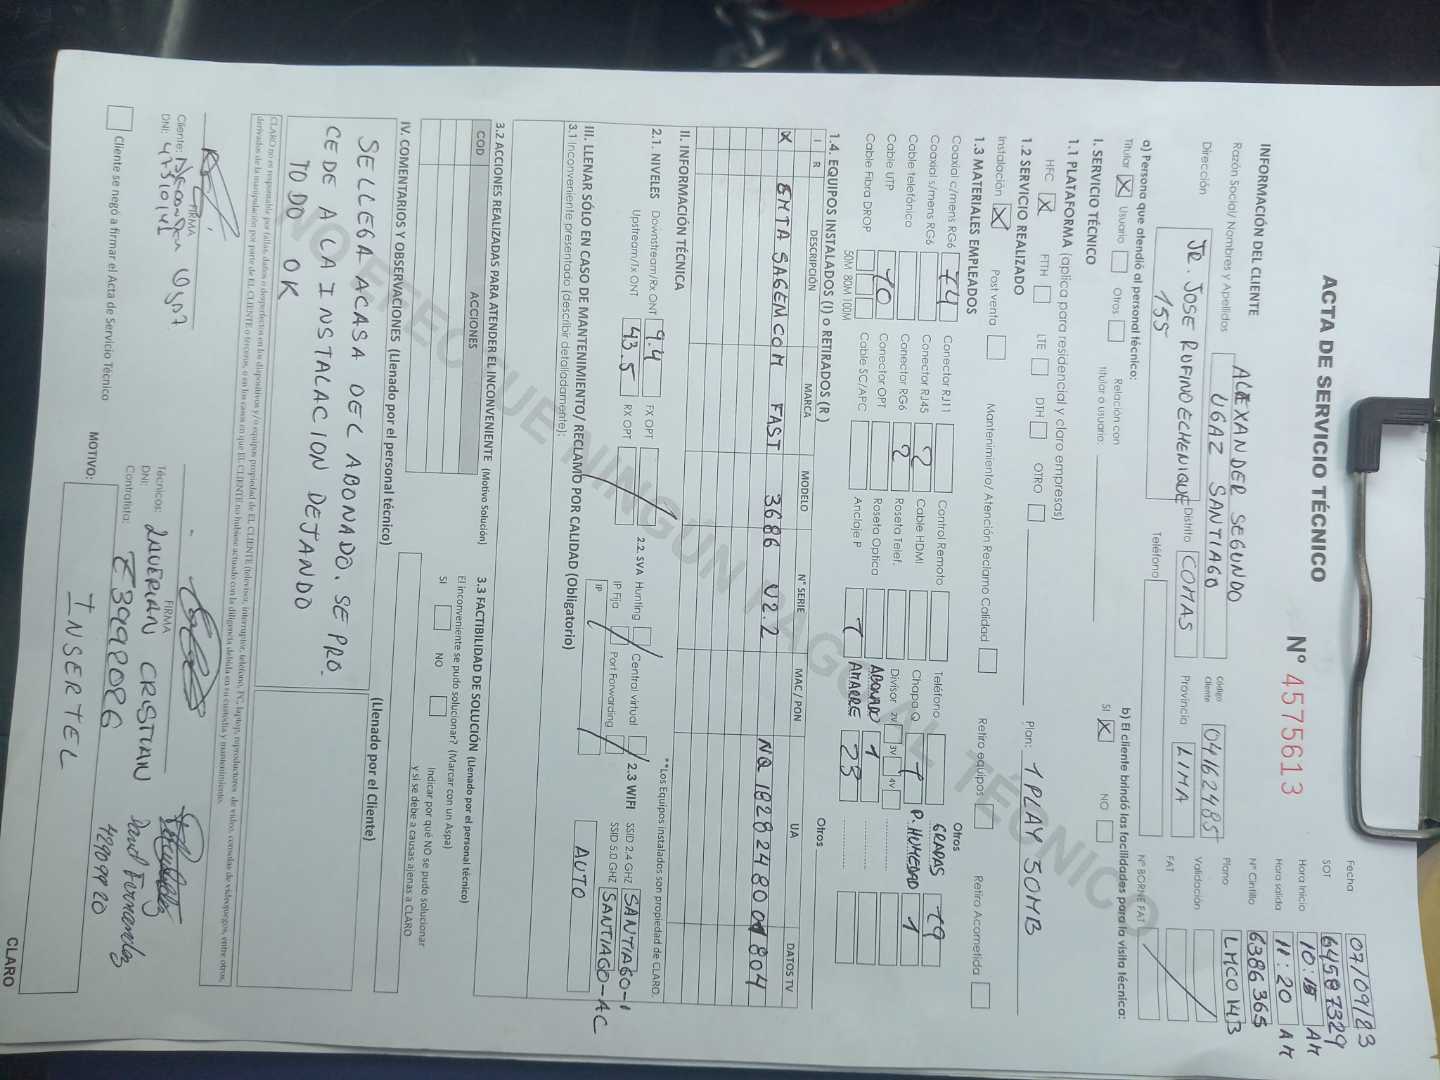 ACTA DE SERVICIO TÉCNICO
N° 4575613
Fecha 07/09/23
SOT 64587329
Hora Inicio 10:15 AM
Hora salida 11:20 AM
N° Cintillo 6386365
Plano LMCO143
Validación
FAT
N° BORNE FAT
INFORMACIÓN DEL CLIENTE
Razón Social/ Nombres y Apellidos ALEXANDER SEGUNDO
UGAZ SANTIAGO
Código cliente 04162485
Dirección JR. JOSE RUFINO ECHENIQUE
155
Distrito COMAS
Provincia LIMA
Teléfono
a) Persona que atendió al personal técnico:
Titular X Usuario Otros Relación con titular o usuario
b) El cliente brindó las facilidades para la visita técnica:
SI X NO
I. SERVICIO TÉCNICO
1.1 PLATAFORMA (aplica para residencial y claro empresas)
HFC X FTTH LTE DTH OTRO
Plan: 1 PLAY 50MB
1.2 SERVICIO REALIZADO
Instalación X Post venta Mantenimiento/ Atención Reclamo Calidad Retiro equipos Retiro Acometida
1.3 MATERIALES EMPLEADOS
Otros
Coaxial c/mens RG6 Conector RJ11 Control Remoto Teléfono GRAPAS 19
Coaxial s/mens RG6 Conector RJ45 Cable HDMI Chapa Q 1 P. HUMEDAD 1
Cable telefónica Conector RG6 Roseta Telef. Divisor 2V 3V 4V
Cable UTP 10 Conector OPT Roseta Optica 1
Cable Fibra DROP 50M 80M 100M Cable SC/APC Anclaje P 1 AMARRE 25
1.4. EQUIPOS INSTALADOS (I) o RETIRADOS (R )
Otros
I R DESCRIPCIÓN MARCA MODELO N° SERIE MAC / PON UA DATOS TV
X EMTA SAGEMCOM FAST 3686 V2.2 NQ1828248001804
**Los Equipos instalados son propiedad de CLARO.
II. INFORMACIÓN TÉCNICA
2.1. NIVELES Downstream/Rx ONT 9.4 FX OPT
Upstream/Tx ONT 43.5 RX OPT
2.2. SVA Hunting Central virtual
IP Fija Port Forwarding
IP
2.3 WIFI SSID 2.4 GHZ SANTIAGO-1
SSID 5.0 GHZ SANTIAGO-AC
AUTO
III. LLENAR SÓLO EN CASO DE MANTENIMIENTO/ RECLAMO POR CALIDAD (Obligatorio)
3.1 Inconveniente presentado (describir detalladamente):
3.2 ACCIONES REALIZADAS PARA ATENDER EL INCONVENIENTE (Motivo Solución)
COD ACCIONES
3.3 FACTIBILIDAD DE SOLUCIÓN (Llenado por el personal técnico)
El inconveniente se pudo solucionar? (Marcar con un Aspa)
SI NO
Indicar por qué NO se pudo solucionar
y si se debe a causas ajenas a CLARO
IV. COMENTARIOS Y OBSERVACIONES (Llenado por el personal técnico)
(Llenado por el Cliente)
SE LLEGA ACASA DEL ABONADO. SE PRO.
CEDE A LA INSTALACION DEJANDO
TODO OK
CLARO no es responsable por fallas, daños o desperfectos en los dispositivos y/o equipos propiedad de EL CLIENTE (televisor, interruptor, teléfono, PC, laptop, reproductores de video, consolas de videojuegos, entre otros,
derivados de la manipulación por parte de EL CLIENTE o terceros, o en los casos en que EL CLIENTE no hubiese actuado con la diligencia debida en su custodia y mantenimiento.
FIRMA
Cliente:
DNI: 47310141
FIRMA
Técnicos: LAVERIAN CRISTIAN
DNI: 73998086
Contratista: INSERTEL
42909920
Cliente se negó a firmar el Acta de Servicio Técnico
MOTIVO:
CLARO
NO EFECTUE NINGÚN PAGO AL TÉCNICO